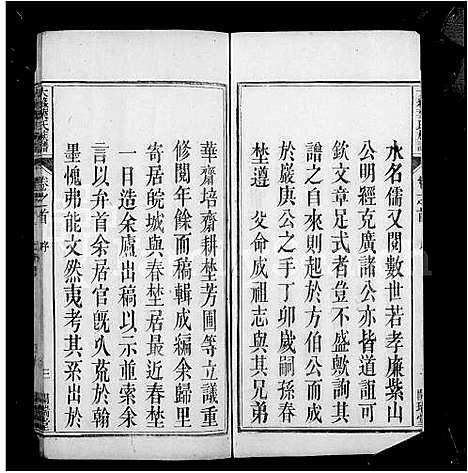 水名儒又閱數世若孝廉紫山
公明經克廣諸公亦皆道誼可
欽文章足式者豈不盛歟而
譜之自來則起於方伯公而成
於嚴庚公之手丁卯歲嗣孫春
埜遵
父命成祖志與其兄弟
華齋培齋耕埜芳圃等立議重
修閱年餘而稿輯成編余歸里
寄居皖城與春埜居最近春埜
一日造余廬出稿以示並索余
言以弁首余居官旣久荒於翰
墨愧弗能文然夷考其系出於
首
序
三